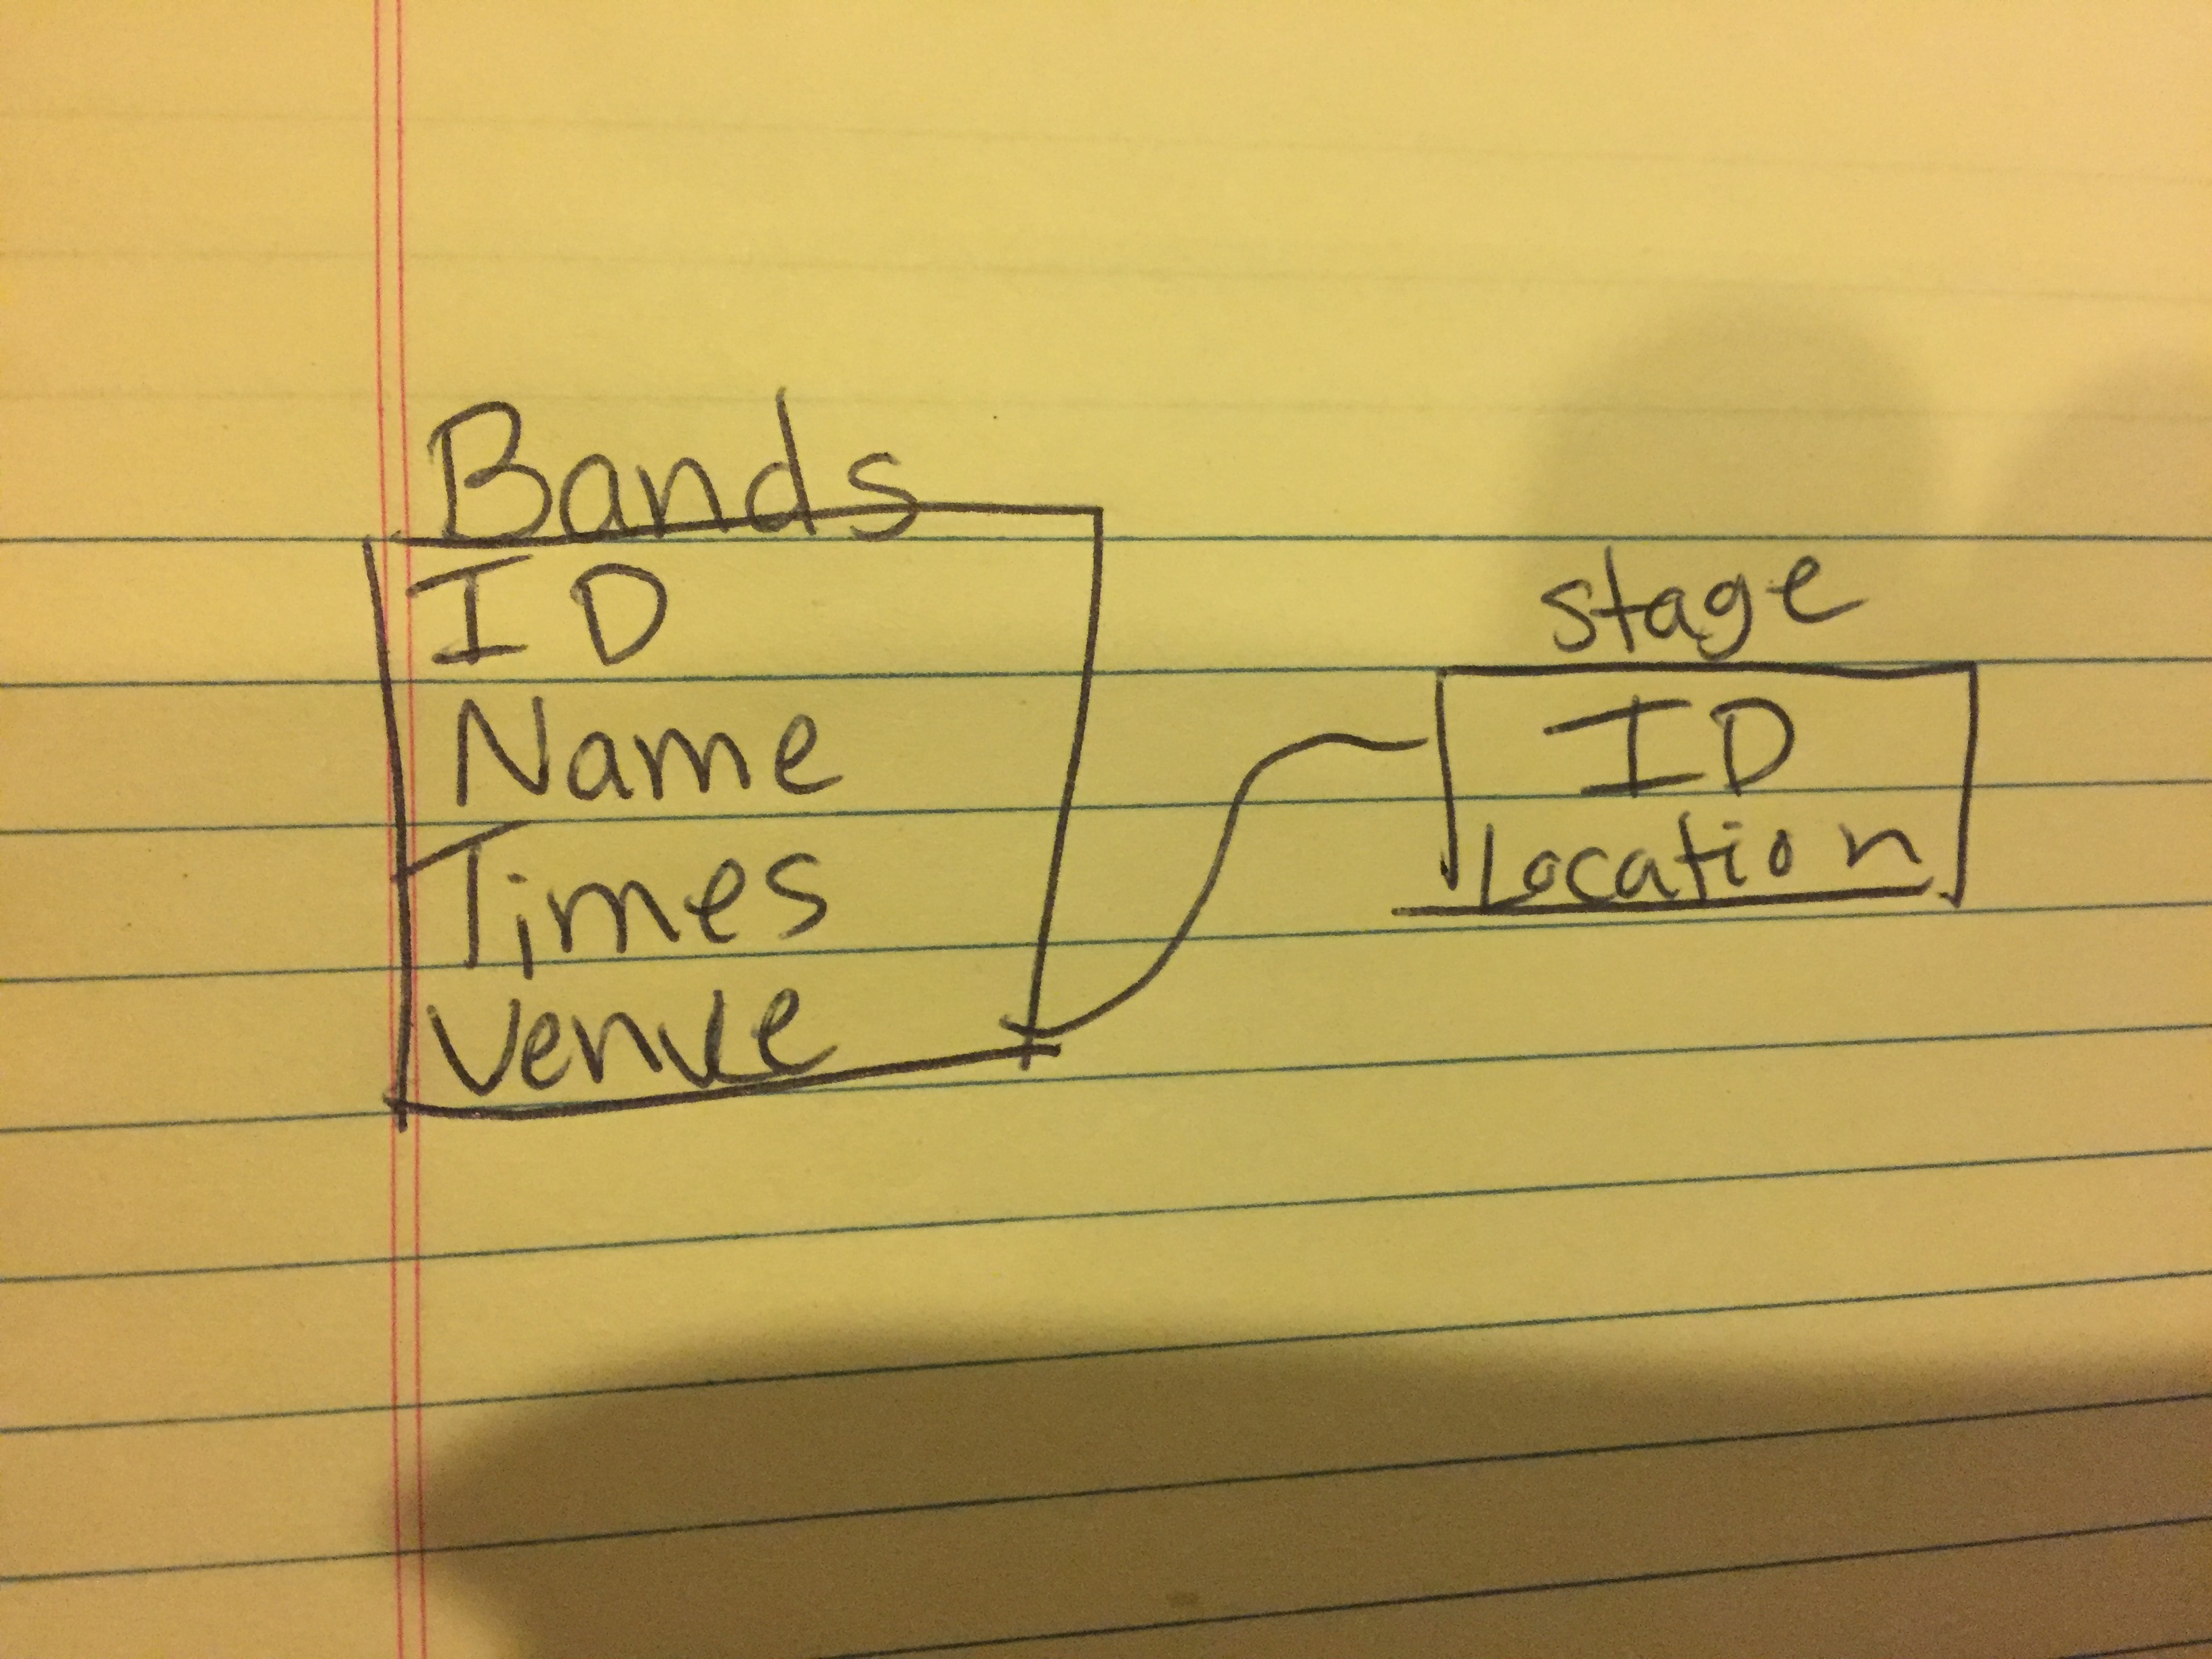 Bands
ID
Name
Times
Venue
stage
ID
Location